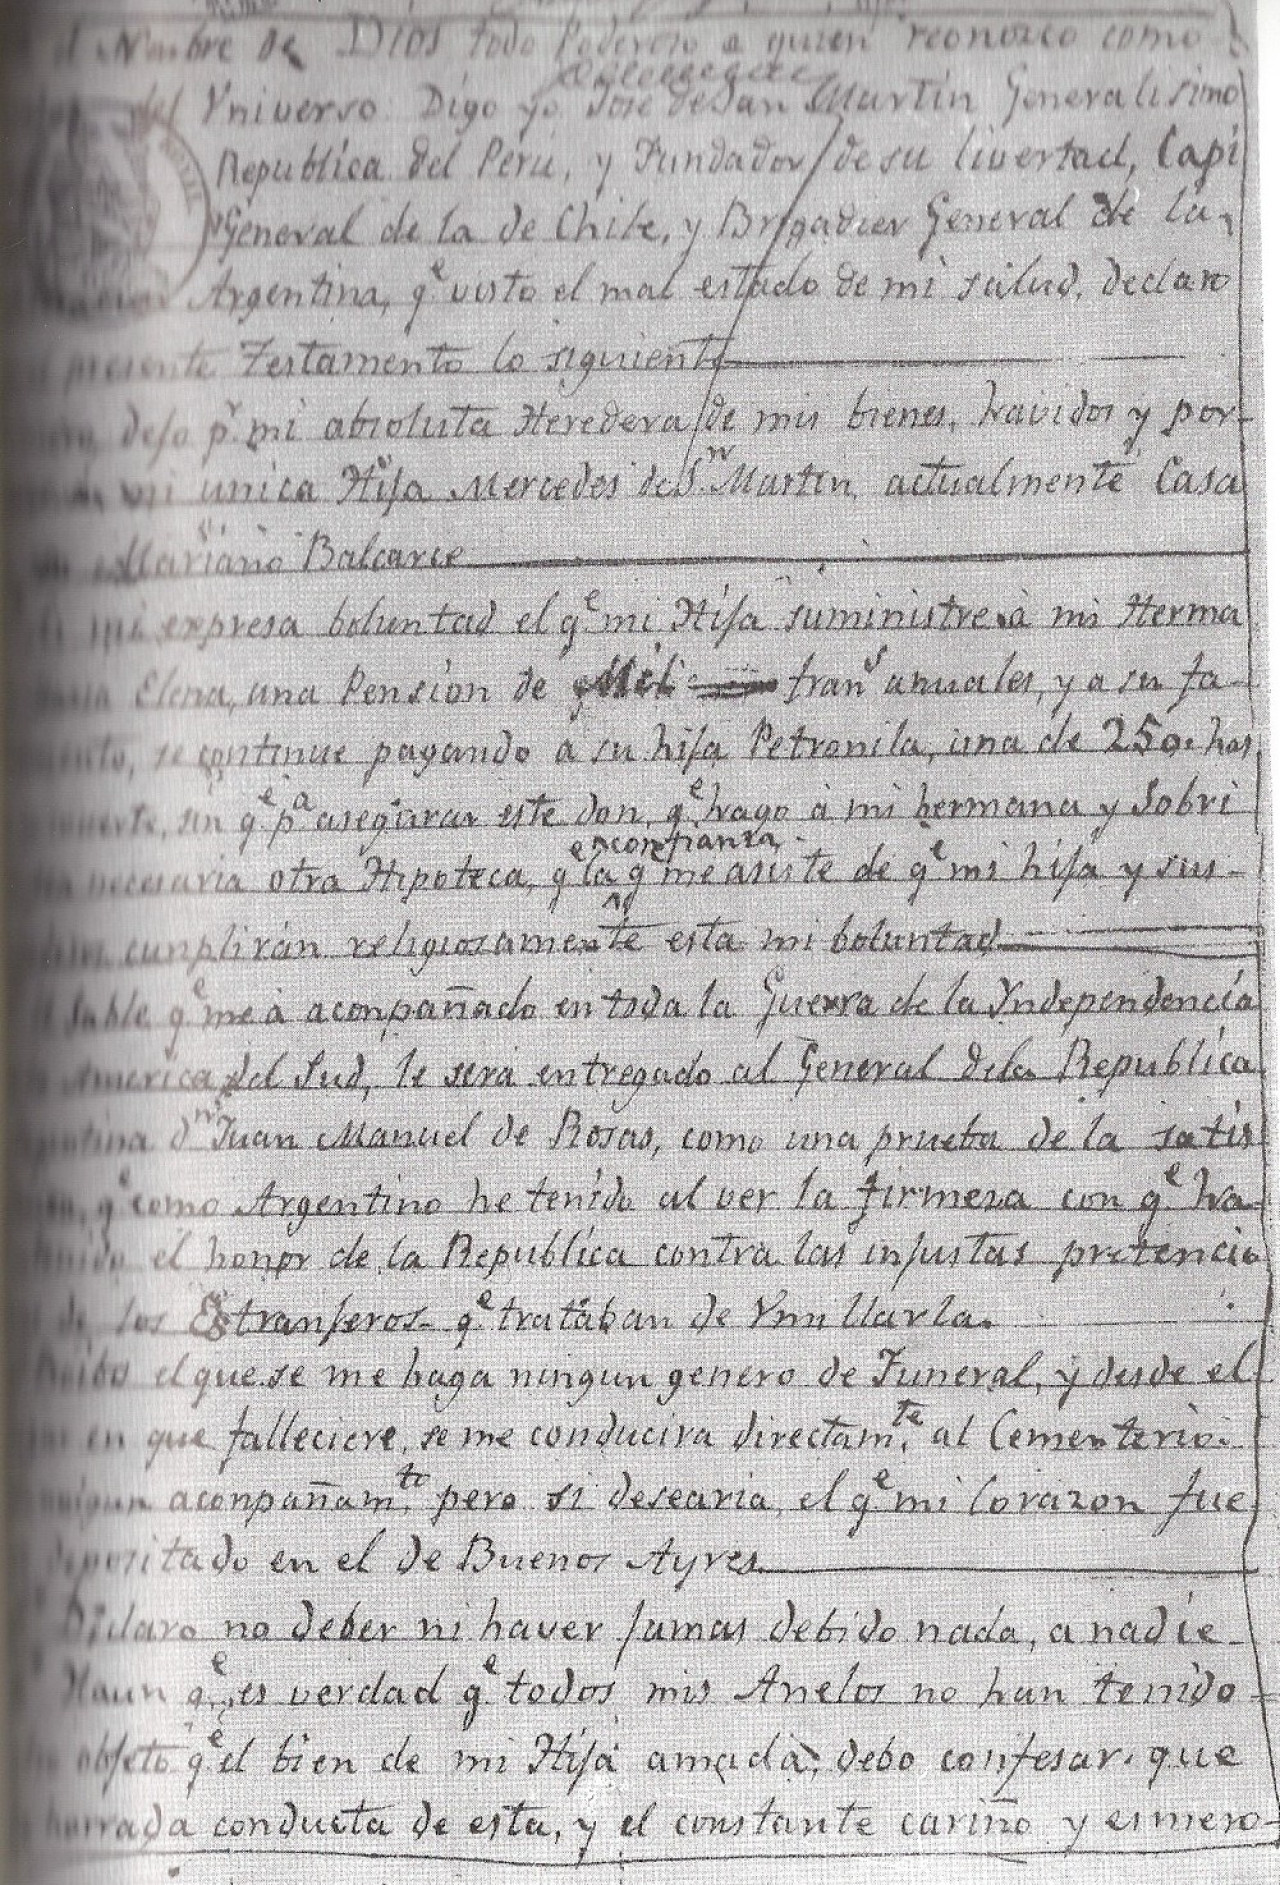 el Nombre de Dios todo Poderoso a quien reconozco como
del Yniverso: Digo yo Jose de San Martin Generalisimo
Republica del Peru, y Fundador de su livertad, Capi
General de la de Chile, y Brigadier General de la
Argentina, qe visto el mal estado de mi salud, declaro
presente Testamento lo siguiente
dejo pr mi absoluta Heredera de mis bienes, havidos y por-
mi unica Hija Mercedes de Sn Martin actualmente Casa
Mariano Balcarce
mi expresa boluntad el qe mi Hija suministre à mi Herma
Elena, una Pension de Mil frans anuales, y a su fa-
to, se continue pagando a su hija Petronila, una de 250, has
muerte, sin qe pa asegurar este don qe hago à mi hermana y Sobri
confianza
necesaria otra Hipoteca, q la q me asiste de qe mi hija y sus-
cunplirán religiosamente esta mi boluntad
sable qe me à aconpañado en toda la Guerra de la Yndependencia
America del Sud, le será entregado al General de la Republica
gentina Dn Juan Manuel de Rosas, como una prueba de la satis
qe como Argentino he tenido al ver la firmeza con qe ha-
tenido el honor de la Republica contra las injustas pretencio
de los Estranjeros qe trataban de Ymillarla.
hibo el que se me haga ningun genero de Funeral, y desde el
en que falleciere, se me conducira directamte al Cementerio
ningun aconpañamto pero si desearia, el qe mi Corazon fue
depositado en el de Buenos Ayres
Declaro no deber ni haver jamas debido nada, a nadie-
Haun qe es verdad qe todos mis Anelos no han tenido-
objeto qe el bien de mi Hija amada, debo confesar, que
honrrada conducta de esta, y el constante cariño y esmero-